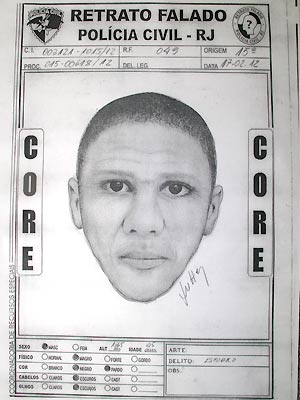 RETRATO FALADO
POLÍCIA CIVIL - RJ
C.I. 002121-1015/12 R.F. 049 ORIGEM 15ª
PROC. 015-00618/12 DEL. LEG. DATA 17.02.12
CORE
CORE
COORDENADORIA DE RECURSOS ESPECIAIS
SEXO MASC FEM ALT IDADE
FÍSICO NORMAL MAGRO FORTE GORDO
COR BRANCO NEGRO PARDO
CABELOS CLAROS ESCUROS CAST
OLHOS CLAROS ESCUROS CAST
ARTE:
DELITO: ESTUPRO
OBS: